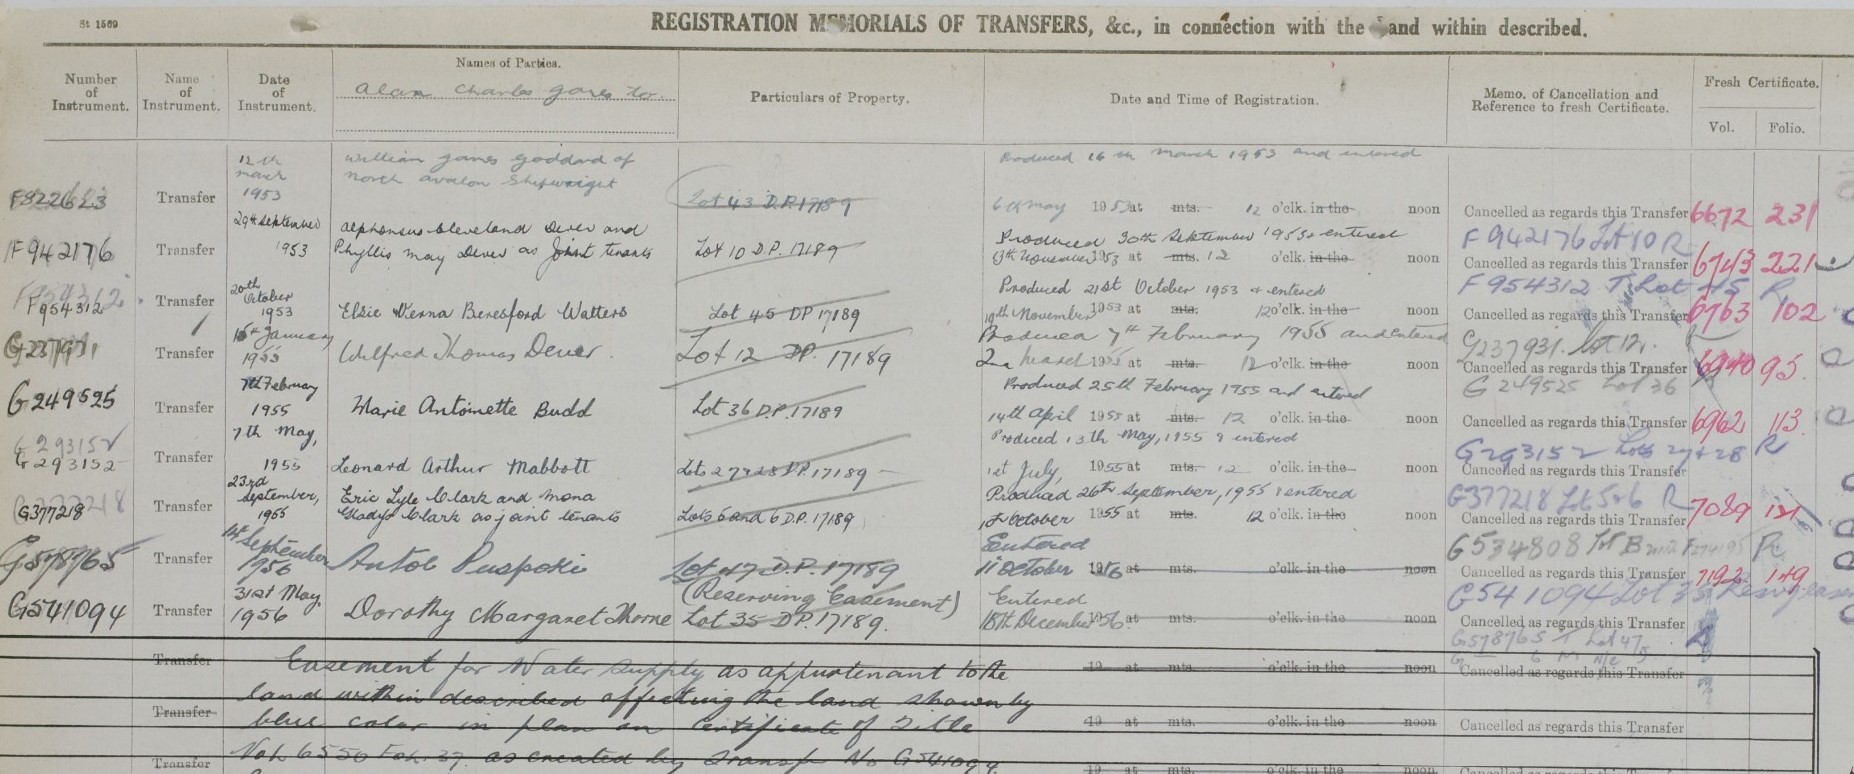 St 1569
REGISTRATION MEMORIALS OF TRANSFERS, &c., in connection with the land within described.
Number of Instrument.
Name of Instrument.
Date of Instrument.
Names of Parties.
Alan Charles Jones to
Particulars of Property.
Date and Time of Registration.
Memo. of Cancellation and Reference to fresh Certificate.
Fresh Certificate.
Vol. Folio.
12th March 1953 William James Goddard of Produced 16th March 1953 and entered
North Avalon Shipwright
F822623 Transfer Lot 43 D.P. 17189 6th May 1953 at mts. 12 o'clk. in the noon Cancelled as regards this Transfer 6672 231
29th September Alphonsus Cleveland Dever and Produced 30th September 1953 & entered F942176 Lot 10 R
F942176 Transfer 1953 Phyllis May Dever as Joint tenants Lot 10 D.P. 17189 13th November 1953 at mts. 12 o'clk. in the noon Cancelled as regards this Transfer 6743 221
20th October Produced 21st October 1953 & entered F954312 T Lot 45 R
F954312 Transfer 1953 Elsie Vierna Beresford Watters Lot 45 DP 17189 19th November 1953 at mts. 12 o'clk. in the noon Cancelled as regards this Transfer 6763 102
15th January Produced 7th February 1955 and entered G237931. Lot 12.
G237931 Transfer 1955 Wilfred Thomas Dever. Lot 12 DP. 17189 2nd March 1955 at mts. 12 o'clk. in the noon Cancelled as regards this Transfer 6940 95.
7th February Produced 25th February 1955 and entered G 249525 Lot 36
G249525 Transfer 1955 Marie Antoinette Budd Lot 36 D.P. 17189 14th April 1955 at mts. 12 o'clk. in the noon Cancelled as regards this Transfer 6962 113
G293152 7th May, Produced 13th May, 1955 & entered G293152 Lots 27 + 28 R
G293152 Transfer 1955 Leonard Arthur Mabbott Lots 27 & 28 D.P. 17189 1st July, 1955 at mts. 12 o'clk. in the noon Cancelled as regards this Transfer
23rd September, Eric Lyle Clark and Mona Produced 26th September, 1955 & entered G377218 Lot 5 & 6 R
G377218 Transfer 1955 Gladys Clark as joint tenants Lots 5 and 6 D.P. 17189 October 1955 at mts. 12 o'clk. in the noon Cancelled as regards this Transfer 7089 121
September Entered G534808
G578765 Transfer 1956 Antol Puspoki Lot 47 D.P. 17189 11 October 1956 at mts. o'clk. in the noon Cancelled as regards this Transfer 7192 149
31st May, (Reserving Easement) Entered G541094 Lot 35
G541094 Transfer 1956 Dorothy Margaret Thorne Lot 35 D.P. 17189. 18th December 1956 at mts. o'clk. in the noon Cancelled as regards this Transfer
G578765 T Lot 47
Transfer Easement for Water Supply as appurtenant to the 19 at mts. o'clk. in the noon Cancelled as regards this Transfer
land within described affecting the land shown by
Transfer blue color in plan on Certificate of Title 19 at mts. o'clk. in the noon Cancelled as regards this Transfer
Transfer Vol. 6550 Fol. 37. as created by Transfer No G541094. 19 at mts. o'clk. in the noon Cancelled as regards this Transfer